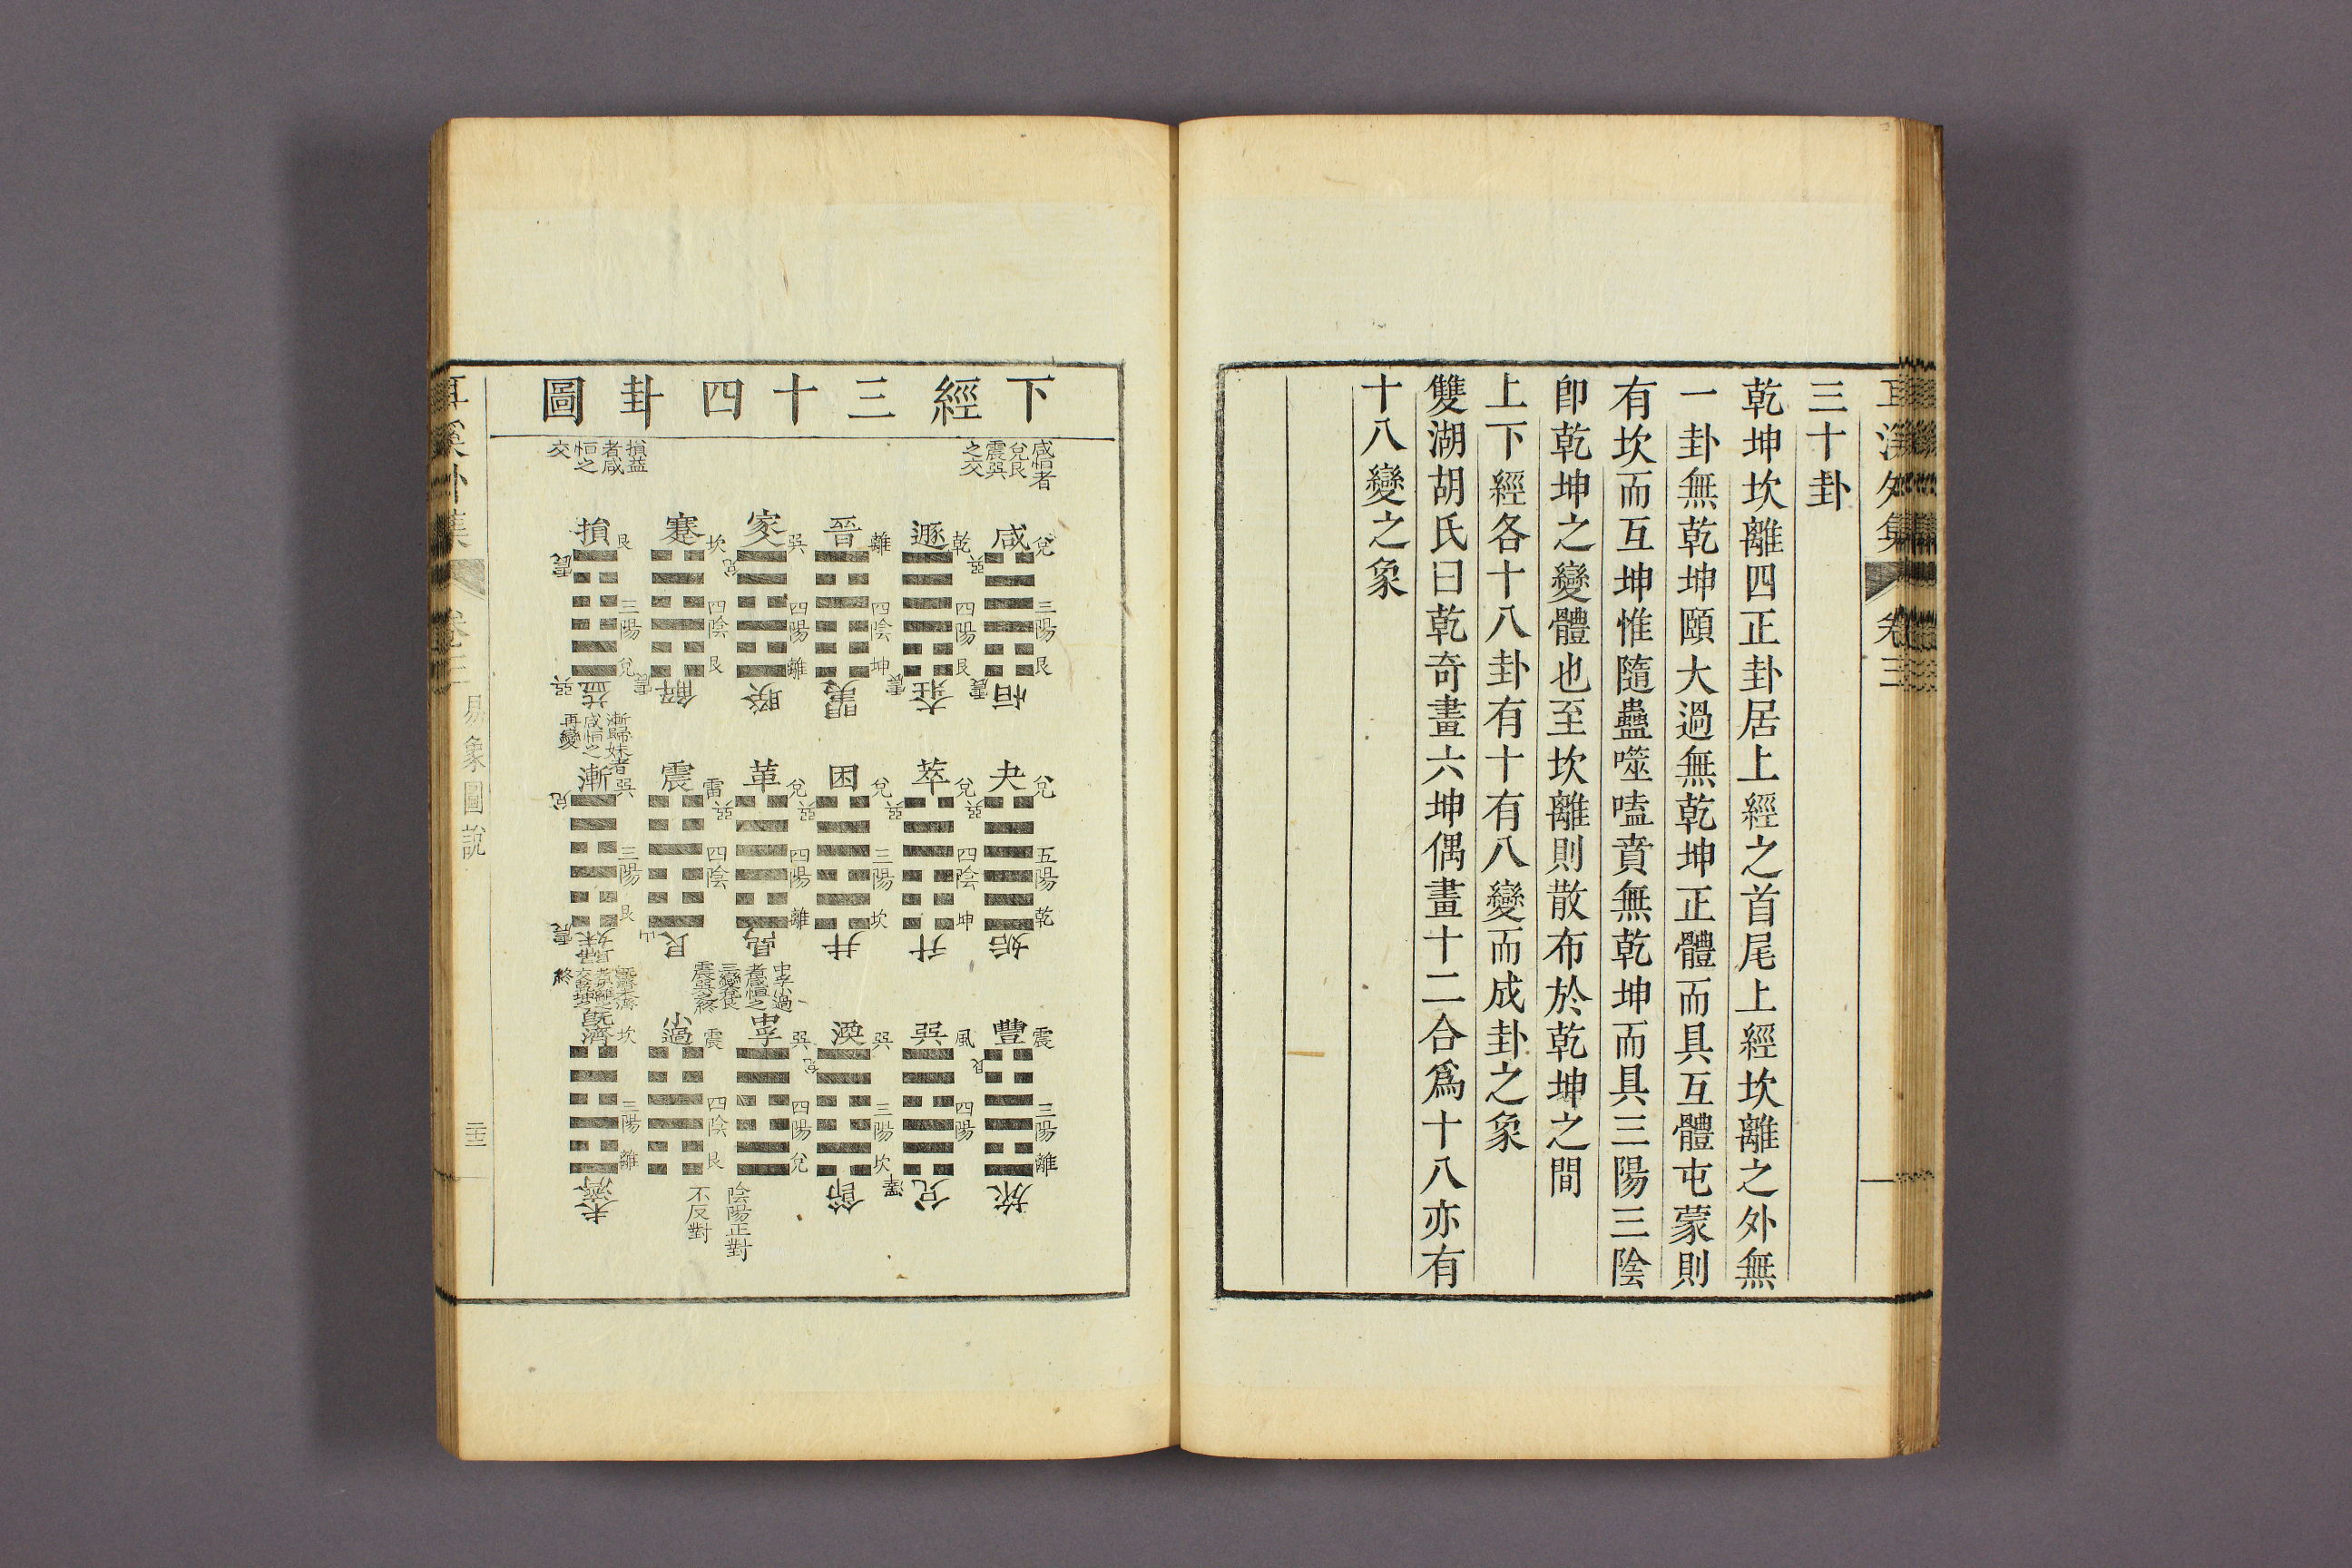 三十卦
乾坤坎離四正卦居上經之首尾上經坎離之外無
一卦無乾坤頤大過無乾坤正體而具互體屯蒙則
有坎而互坤惟隨蠱噬嗑賁無乾坤而具三陽三陰
卽乾坤之變體也至坎離則散布於乾坤之間
上下經各十八卦有十有八變而成卦之象
雙湖胡氏曰乾奇畫六坤偶畫十二合爲十八亦有
十八變之象
下經三十四卦圖
咸恒者
兌艮
震巽
之交
損益
者咸
恒之
交
咸 兌 三陽 艮 恒 震 巽
遯 乾 四陽 艮 大壯 震
晉 離 四陰 坤 明夷
家人 巽 四陽 離 睽 兌
蹇 坎 四陰 艮 解 震
損 艮 三陽 兌 益 巽 震
漸歸妹者
咸恒之
再變
夬 兌 五陽 乾 姤 巽
萃 兌 四陰 坤 升 巽
困 兌 三陽 坎 井 巽
革 兌 四陽 離 鼎 巽
震 雷 四陰 艮 山
漸 巽 三陽 艮 歸妹 震 兌
中孚小過
者咸恒之
三變兌艮
震巽之終
豐 震 三陽 離 旅 艮
巽 風 四陽 兌 澤
渙 巽 三陽 坎 節 兌
中孚 巽 四陽 兌
小過 震 四陰 艮
既濟 坎 三陽 離 未濟
陰陽正對
不反對
耳溪外集 卷三 易象圖說